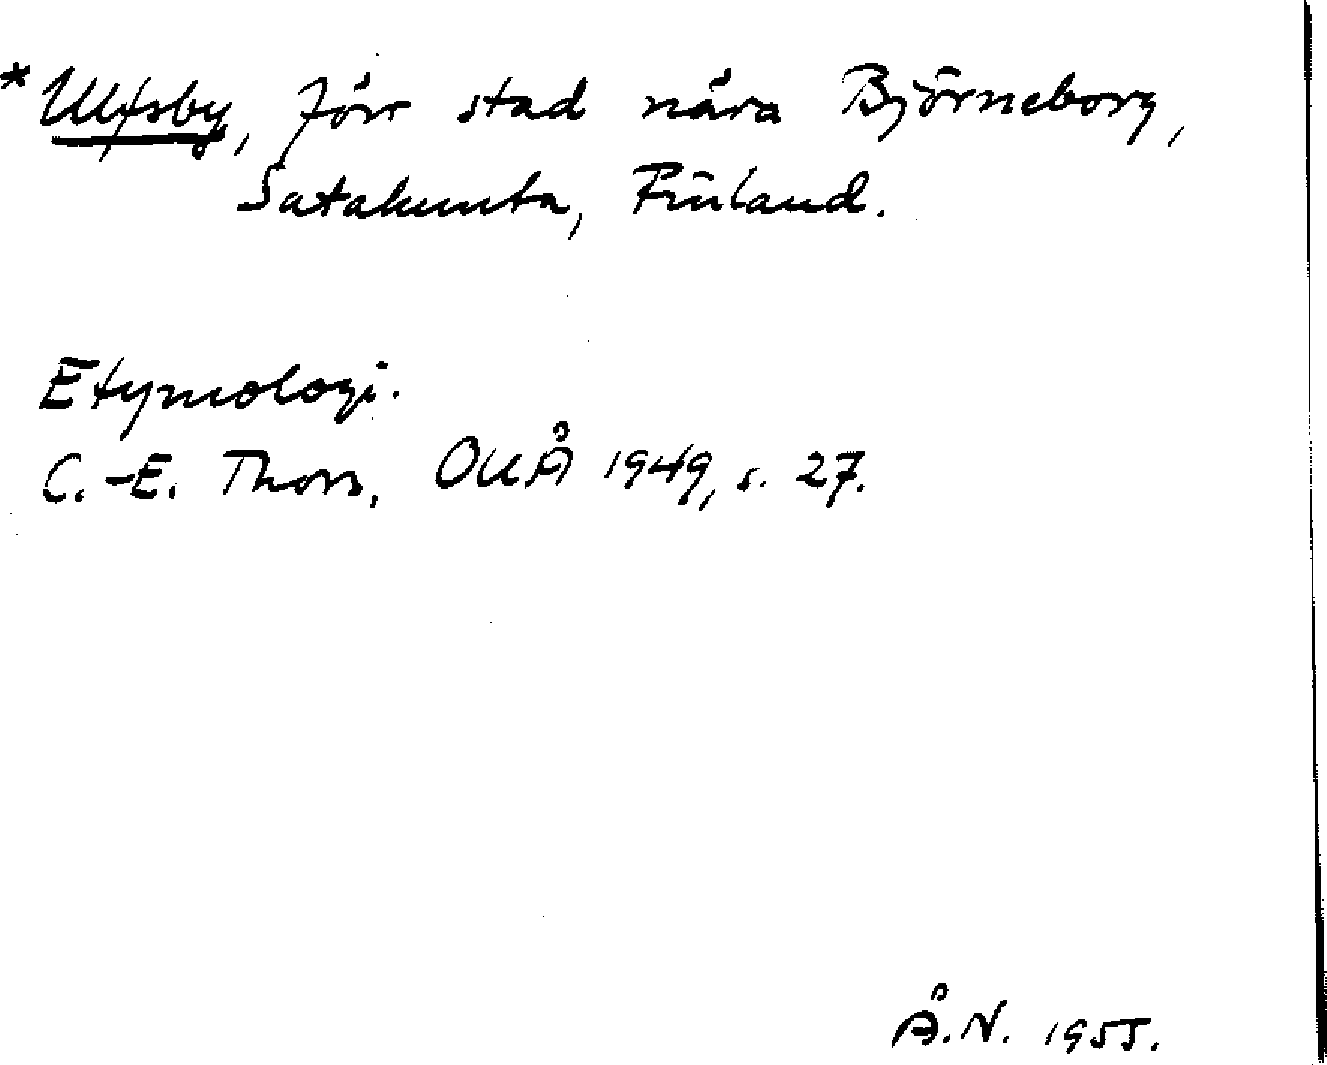 *Ulfsby, förr stad nära Björneborg,
Satakunta, Finland.
Etymologi.
C.-E. Thors, OUÅ 1949, s. 27.
Å.N. 1955.